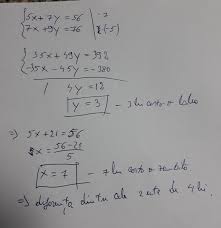 5x + 7y = 56 | ·7
7x + 9y = 76 | ·(-5)
35x + 49y = 392
-35x - 45y = -380
/ 4y = 12
y = 3 - 3 lei costa o lalea
=> 5x + 21 = 56
x = 56 - 21
5
x = 7 - 7 lei costa o zambila
=> diferența dintre cele 2 este de 4 lei.